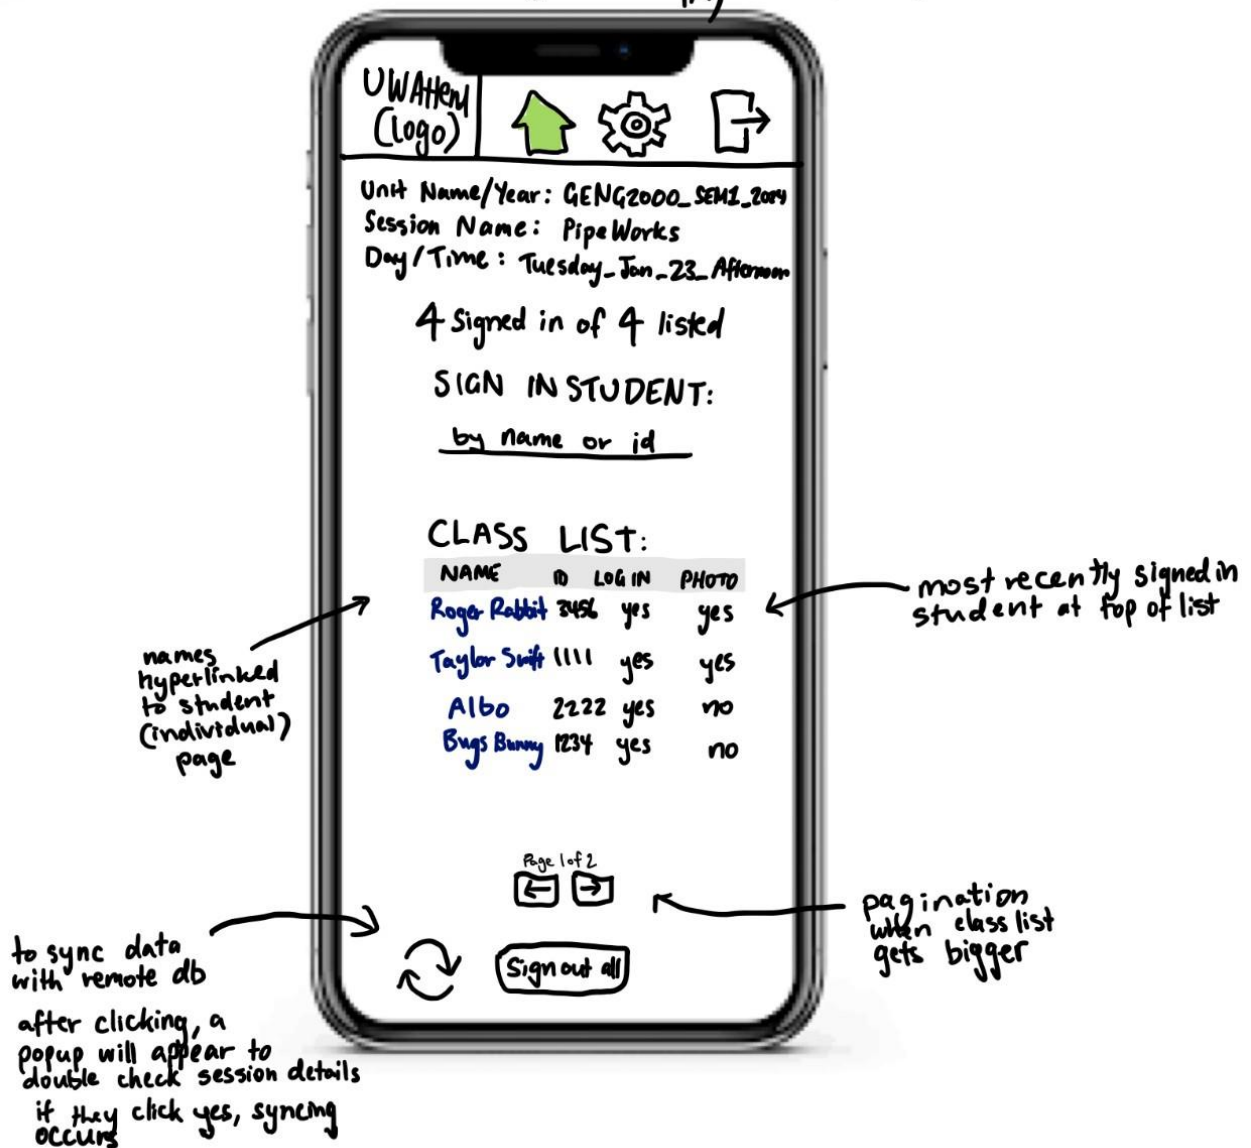 UWAttend
(logo)
Unit Name/Year: GENG2000_SEM1_2024
Session Name: PipeWorks
Day/Time: Tuesday_Jan_23_Afternoon
4 Signed in of 4 listed
SIGN IN STUDENT:
by name or id
CLASS LIST:
NAME ID LOG IN PHOTO
Roger Rabbit 3456 yes yes
Taylor Swift 1111 yes yes
Albo 2222 yes no
Bugs Bunny 1234 yes no
most recently signed in
student at top of list
names
hyperlinked
to student
(individual)
page
Page 1 of 2
← →
pagination
when class list
gets bigger
Sign out all
to sync data
with remote db
after clicking, a
popup will appear to
double check session details
if they click yes, syncing
occurs